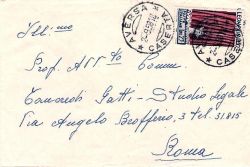 AVERSA
CASERTA
Ill.mo
Prof. Avv.to Comm.
Leonardi Gatti - Studio Legale
Via Angelo Brofferio, 3 tel. 31815
Roma